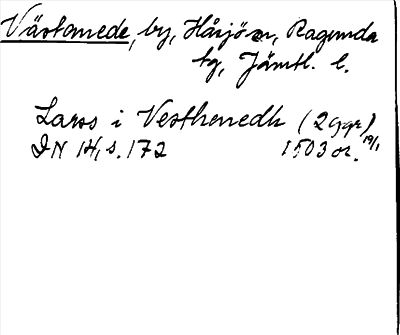 Västanede, by, Håsjö sn, Ragunda
tg, Jämtl. l.
Lares i Vesthenedh (2 ggr)
DN 14, s. 172 1503 or. 19/1